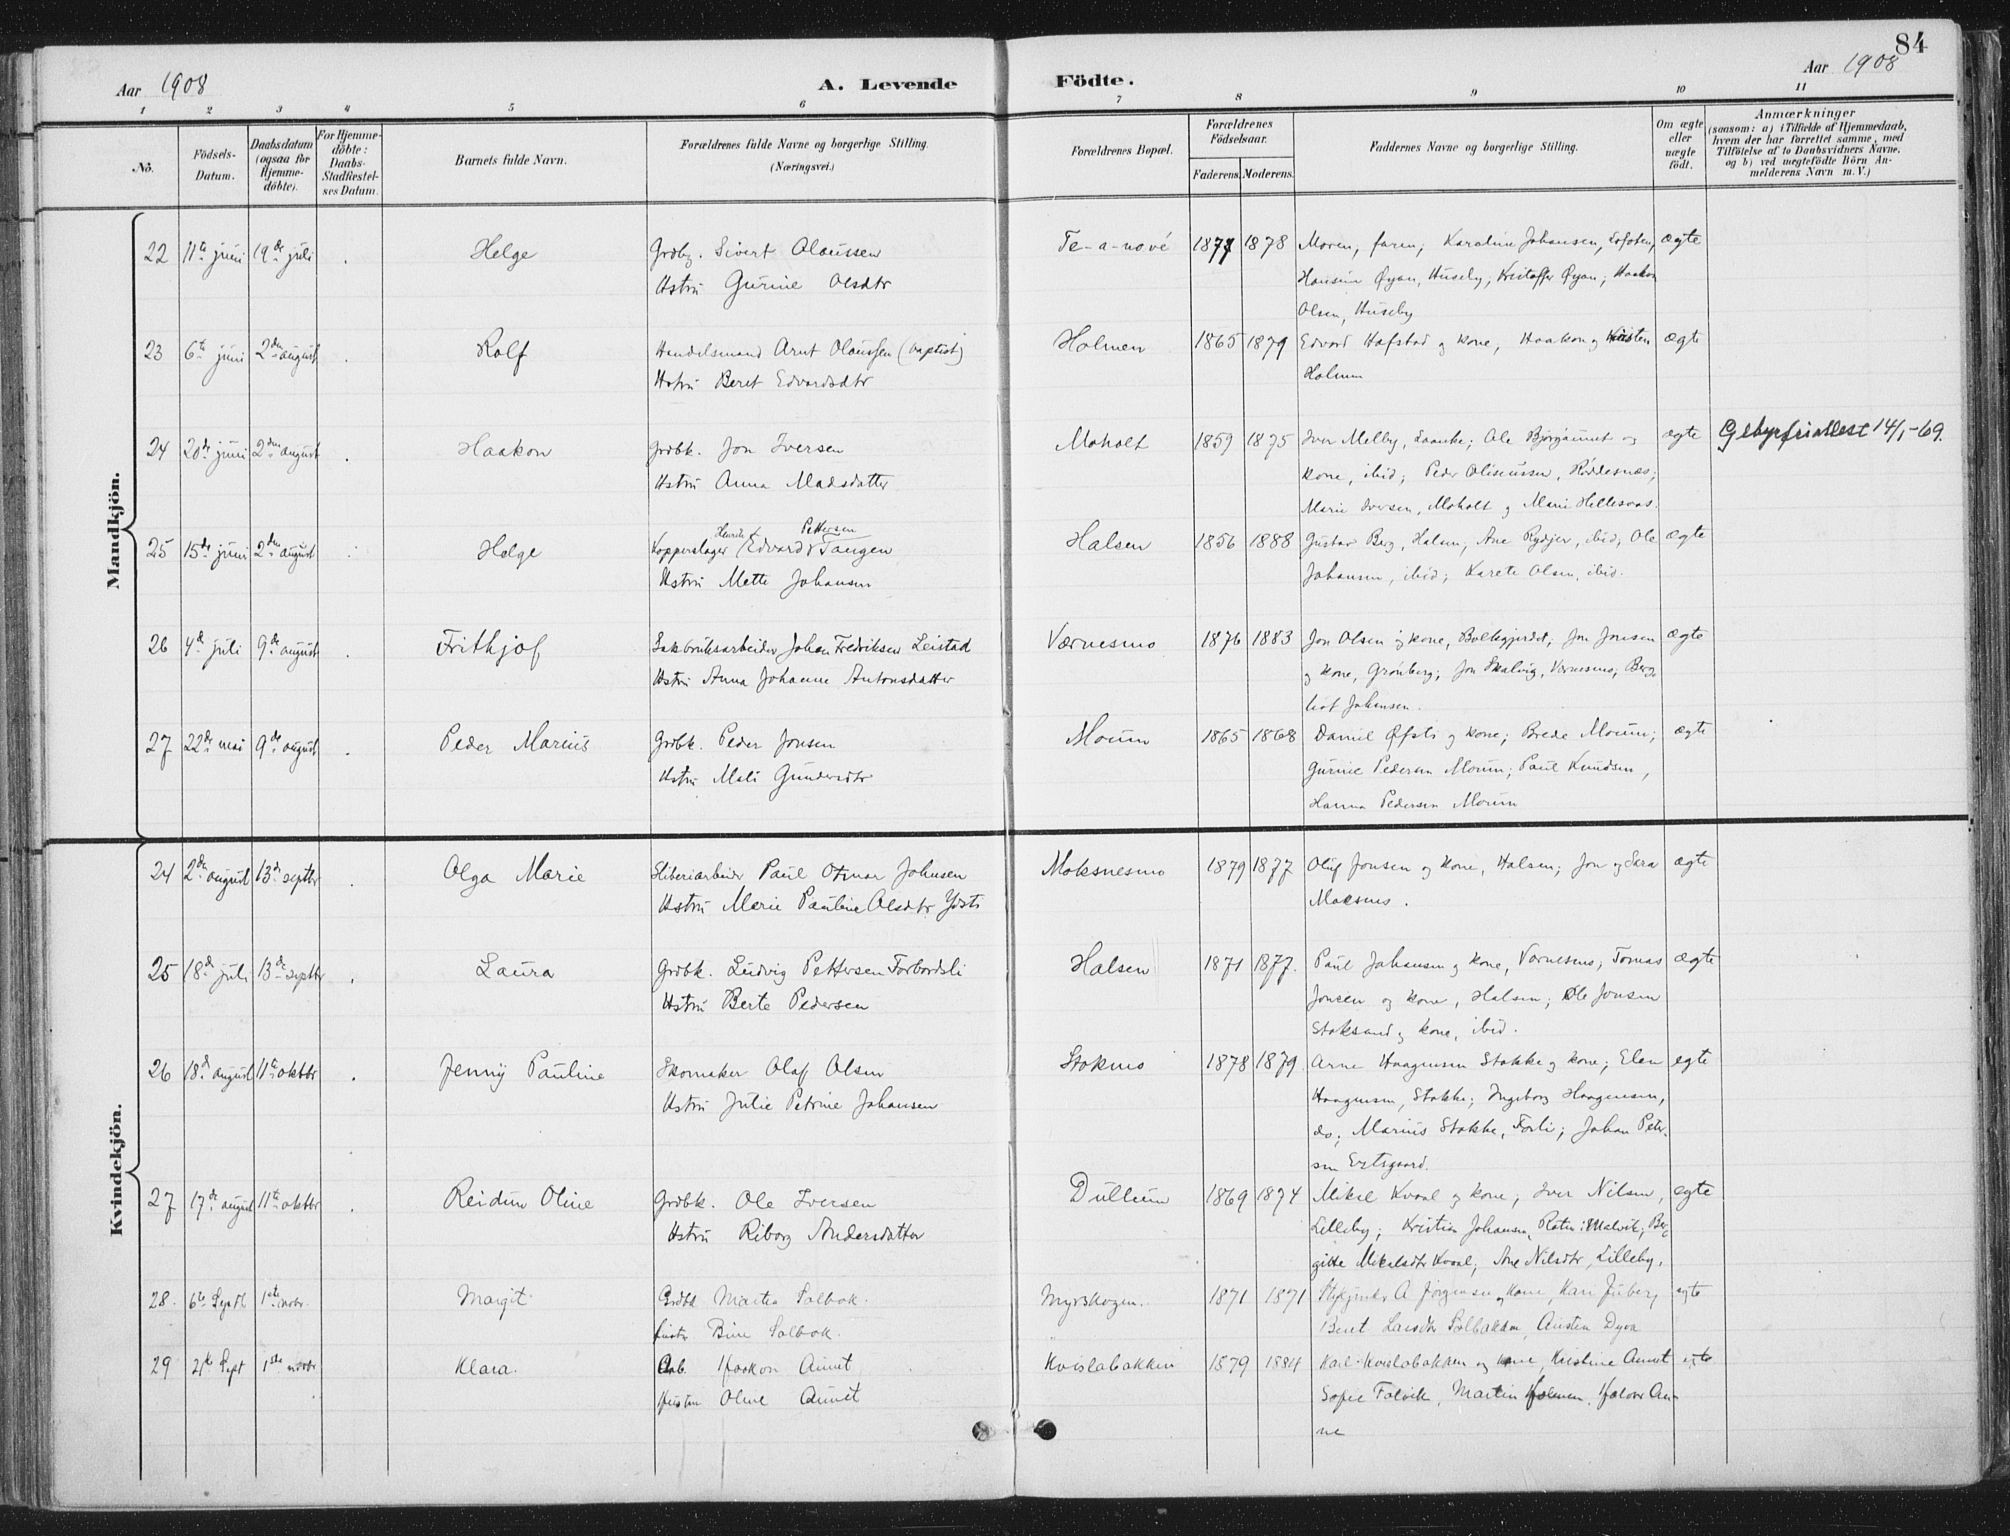 84
Aar 1908
A. Levende
Födte.
Aar 1908
1 2 3 4 5 6 7 8 9 10 11
No.
Födsels-Datum.
Daabsdatum (ogsaa for Hjemme-döbte).
For Hjemme-döbte: Daabs-Stadfæstel-ses Datum.
Barnets fulde Navn.
Forældrenes fulde Navne og borgerlige Stilling. (Næringsvei.)
Forældrenes Bopæl.
Forældrenes Födselsaar.
Faderens. Moderens.
Faddernes Navne og borgerlige Stilling.
Om ægte eller uægte födt.
Anmærkninger
(saasom: a) i Tilfælde af Hjemmedaab,
hvem der har forrettet samme, med
Tilföielse af to Daabsvidners Navne,
og b) ved uegtefödte Börn An-
melderens Navn m. V.)
Mandkjön.
22 11te juni 19de juli . Helge Grdbr. Sivert Olaussen Te-a-nové 1877 1878 Moren, faren, Karoline Johansen, Lofoten, ægte
Hstru Gurine Olsdtr Øyan, Huseby, Kristoffer Øyan; Haakon
Olsen, Huseby
23 6te juni 2den august . Rolf Handelsmand Arnt Olaussen (baptist) Holmen 1865 1879 Edvard Hafstad og kone, Haakon og Kristen ægte
Hstru Beret Edvardsdtr Holmen
24 20de juni 2den august . Haakon Grdbk. Jon Iversen Moholt 1859 1875 Iver Melby, Laanke; Ole Bjørgaunet og ægte Gebyrfri attest 14/1-69.
Hstru Anna Madsdatter kone, ibid; Peder Oliseussen, Røddesnæs;
Marie Iversen, Moholt og Marie Hellesvas.
25 15de juni 2den august . Helge Kopperslager Henrik Edvard Pettersen Tangen Halsen 1856 1888 Gustav Berg, Halsen, Ane Rydjer, ibid, Ole ægte
Hstru Mette Johansen Johansen, ibid; Karete Olsen, ibid.
26 4de juli 9de august . Frithjof Sakbruksarbeider Johan Fredriksen Leistad Værnesmo 1876 1883 Jon Olsen og kone, Bollegjerdet, Jon Jonsen ægte
Hstru Anna Johanne Antonsdatter og kone, Grønberg; Jon Skalvig, Værnesmo; Berg-
liot Johansen.
27 22de mai 9de august . Peder Marius Grdbk. Peder Jonsen Moum 1865 1868 Daniel Øfsti og kone; Brede Moum; ægte
Hstru Mali Gundersdtr Gurine Pedersen Moum; Paul Knudsen,
Hanna Pedersen Moum
Kvindekjön.
24 2den august 13de septbr . Olga Marie Sliberiarbeider Paul Otmar Johnsen Moksnesmo 1879 1877 Oluf Jonsen og kone, Halsen; Jon og Sara ægte
Hstru Merie Pauline Olsdtr Ydsti
25 18de juli 13de septbr . Laura Grdbk. Ludvig Pettersen Forbordsli Halsen 1871 1877. Paul Johansen og kone, Værnesmo, Tomas ægte
Hstru Berte Pedersen Jonsen og kone, Halsen; Ole Jonsen
Stoksand og kone, ibid.
26 18de august 11te oktbr . Jenny Pauline Skomaker Olaf Olsen Stokmo 1878 1879 Arne Haagensen Stokke og kone; Elen egte
Hstru Julie Petrine Johansen Haagensen, Stokke; Ingeborg Haagensen,
do, Marius Stokke, Forli; Johan Peter-
sen Ertsgaard.
27 17de august 11te oktbr . Reidun Oline Grdbk. Ole Iversen Dullum 1869 1874 Mikal Kvaal og kone, Iver Nilsen, egte
Hstru Riborg Andersdatter Lilleby; Kristian Johansen, Malvik; Ber-
gitte Mikalsdtr Kvaal, Ane Nilsdtr Lilleby.
28. 6te Septb 1ste novbr. Margit Grdbk Martin Solbak. Myrskogen. 1871 1871 A Jørgensen og kone, Kari Juberg egte
hustr Bine Solbak. Beret Larsdtr Solbakken, Austin Dyva
29 21de Sept 1ste novbr Klara. Arb. Haakon Aunet Kvislabakken 1879 1884 Karl Kvislabakken og kone, Kristine Aunet egte
Hustru Oline Aunet Sofie Falvik, Martin Holmen, Halvor Au-
ne